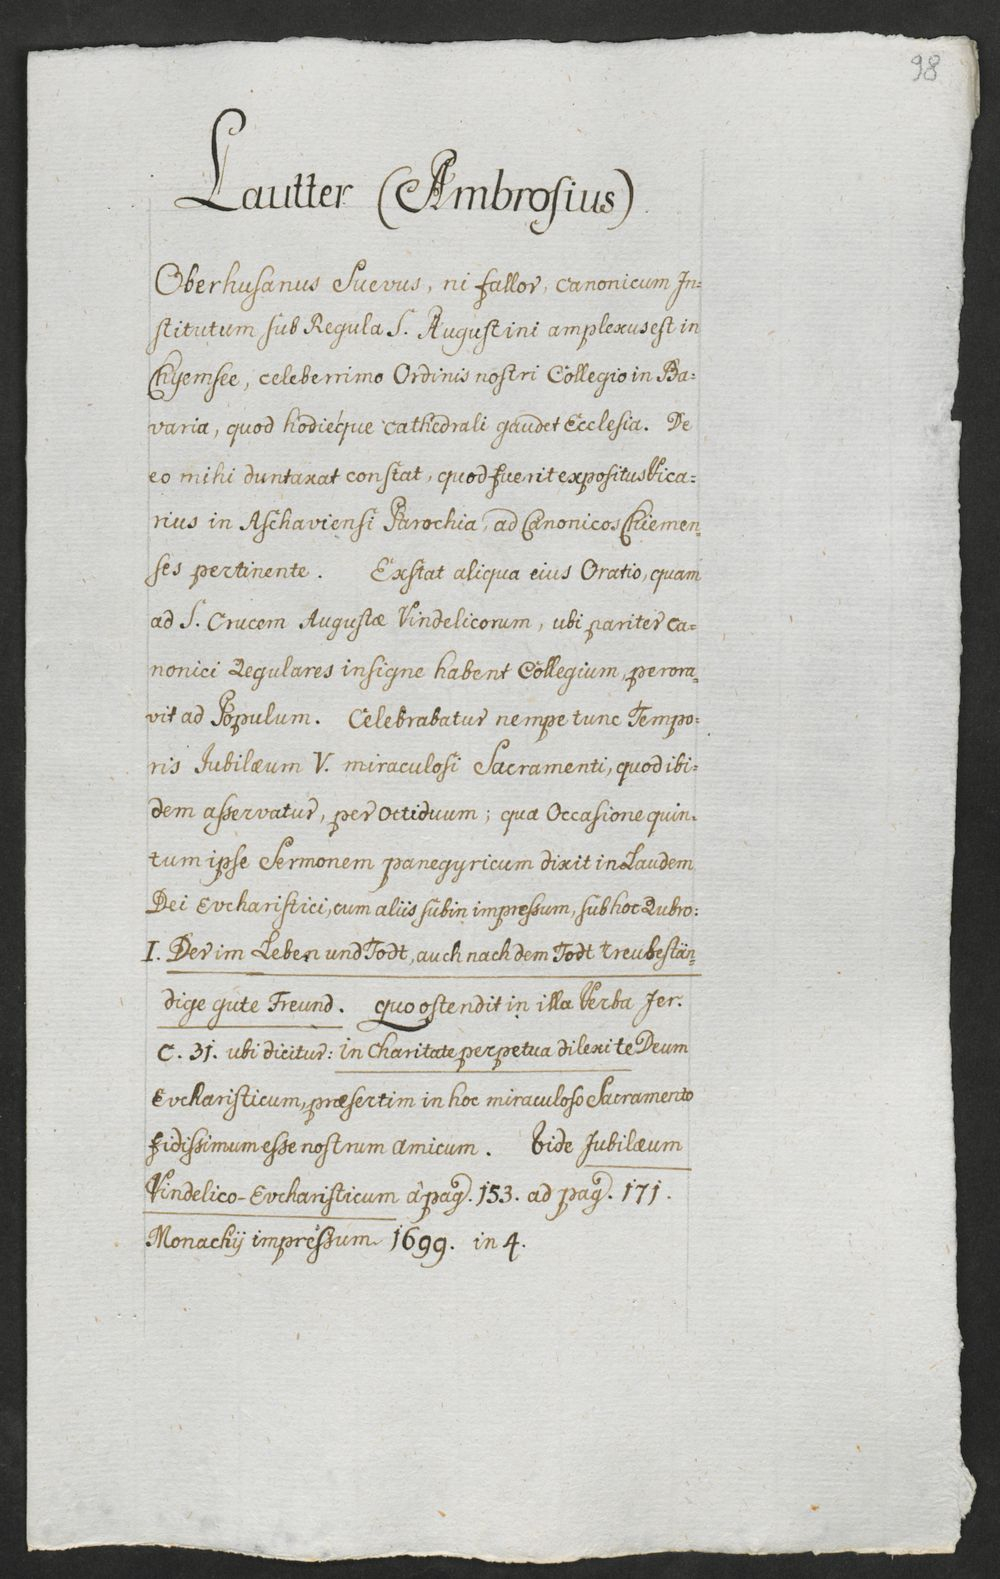 98
Lautter (Ambrosius)
Oberhusanus Suevus, ni fallor, canonicum In=
stitutum sub Regula S. Augustini amplexus est in
Chyemsee, celeberrimo Ordinis nostri Collegio in Ba=
varia, quod hodiéque cathedrali gaudet Ecclesia. De
eo mihi duntaxat constat, quod fuerit expositus Vica=
rius in Aschaviensi Parochia, ad Canonicos Chiemen=
ses pertinente. Exstat aliqua eius Oratio, quam
ad S. Crucem Augustæ Vindelicorum, ubi pariter ca=
nonici Regulares insigne habent Collegium, perora=
vit ad Populum. Celebrabatur nempe tunc Tempo=
ris Jubilæum V. miraculosi Sacramenti, quod ibi=
dem asservatur, per octiduum; qua Occasione quin=
tum ipse Sermonem panegyricum dixit in Laudem
Dei Evcharistici, cum aliis subin impressum, sub hoc Rubro:
I. Der im Leben und Todt, auch nach dem Todt treubestän=
dige gute Freund. quo ostendit in illa Verba Jer.
C. 31. ubi dicitur: in Charitate perpetua dilexi te Deum
Evcharisticum, præsertim in hoc miraculoso Sacramento
fidissimum esse nostrum Amicum. Vide Jubilæum
Vindelico-Evcharisticum à pag. 153. ad pag. 171.
Monachij impressum 1699. in 4.